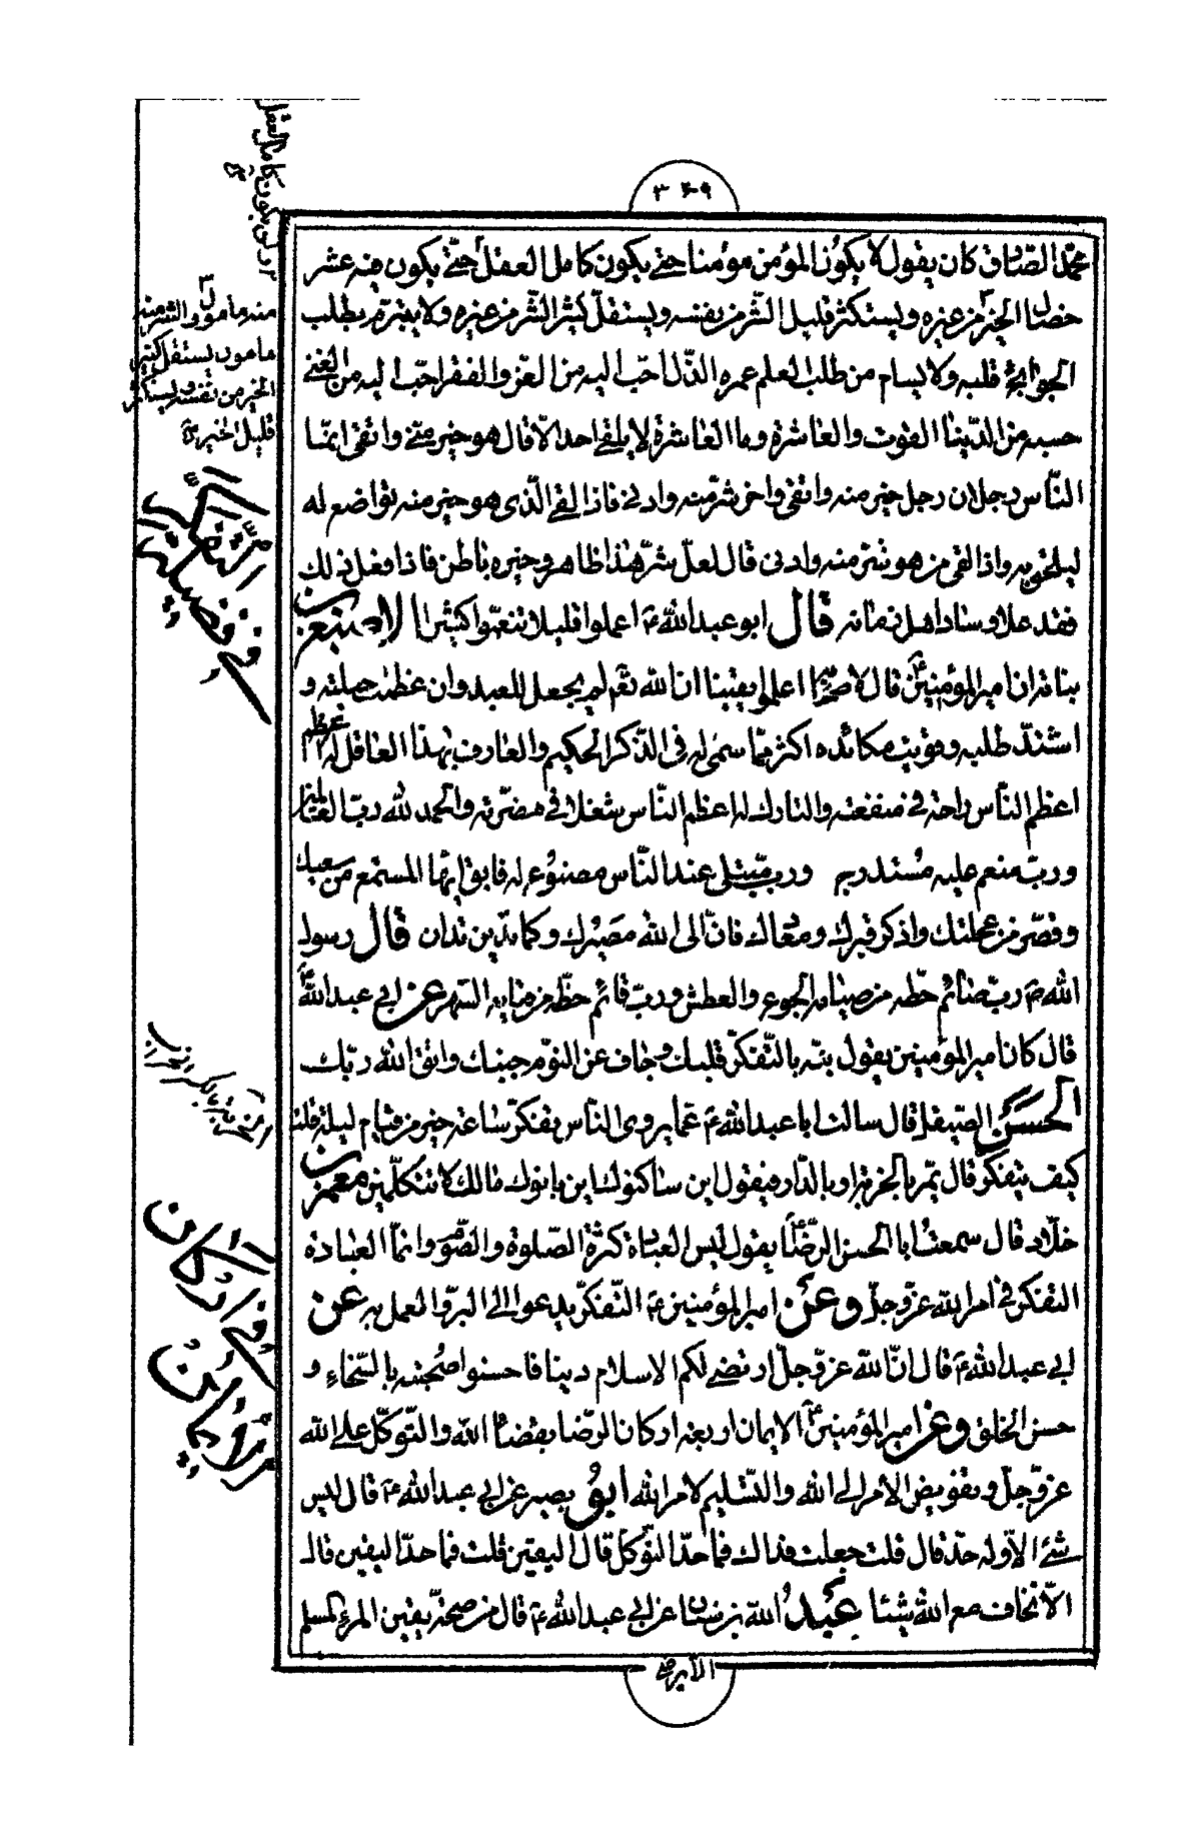 ٣٤٩
محمد الصادق كان يقول لا يكون المؤمن مؤمنا حتى يكون كامل العقل حتى يكون فيه عشر
خصال الخير من غيره ويستكثر قليل الشر من نفسه ويستقل كثير الشر من غيره ولا يتبرم بطلب
الحوائج قلبه ولا يسام من طلب العلم عمره الذل احب اليه من العز والفقر احب اليه من الغنى
حسبه من الدنيا القوت والعاشرة وما العاشرة لا يلقى احدا الا قال هو خير منى واتقى انما
الناس رجلان رجل خير منه واتقى واخر شر منه وادنى فاذا لقى الذى هو خير منه تواضع له
ليلحق به واذا لقى من هو شر منه وادنى قال لعل شر هذا ظاهر وخيره باطن فاذا فعل ذلك
فقد علا وساد اهل زمانه قال ابو عبد الله ع اعملوا قليلا تنعموا كثيرا الاصبغ بن
نباته ان امير المؤمنين قال لاصحابه اعلموا يقينا ان الله تعم لم يجعل للعبد وان عظمت حيلته و
اشتد طلبه وقويت مكائده اكثر مما سمى له فى الذكر الحكيم والعارف بهذا العاقل له
اعظم الناس راحة فى منفعته والتارك له اعظم الناس شغلا فى مضرته والحمد لله رب العالمين
ورب منعم عليه مستدرج ورب مبتلى عند الناس مصنوع له فابق ايها المستمع من سعيك
وقصر من عجلتك واذكر قبرك ومعادك فان الى الله مصيرك وكما تدين تدان قال رسول
الله ص رب صائم حظه من صيامه الجوع والعطش ورب قائم حظه من قيامه السهر عن ابى عبد الله
قال كان امير المؤمنين يقول نبه بالتفكر قلبك وجاف عن النوم جنبك واتق الله ربك
الحسن الصيقل قال سالت ابا عبد الله ع عما يروى الناس تفكر ساعة خير من قيام ليلة قلت
كيف يتفكر قال تمر بالخربة او بالدار فيقول اين ساكنوك اين بانوك مالك لا تتكلمين معمر بن
خلاد قال سمعت ابا الحسن الرضا يقول ليس العبادة كثرة الصلوة والصوم وانما العبادة
التفكر فى امر الله عز وجل وعن امير المؤمنين ع التفكر يدعو الى البر والعمل به عن
ابى عبد الله ع قال ان الله عز وجل ارتضى لكم الاسلام دينا فاحسنوا صحبته بالسخاء و
حسن الخلق وعن امير المؤمنين الايمان اربعة اركان الرضا بقضاء الله والتوكل على الله
عز وجل وتفويض الامر الى الله والتسليم لامر الله ابو بصير عن ابى عبد الله ع قال ليس
شئ الا وله حد قال قلت جعلت فداك فما حد التوكل قال اليقين قلت فما حد اليقين قال
الا تخاف مع الله شيئا عبد الله بن سنان عن ابى عبد الله ع قال من صحة يقين المرء المسلم
الا يرضى
ولن يكون كامل العقل
منه مامول والشر منه
مامون يستقل كثير
الخير من نفسه ويستكثر
قليل الخير
فى فضيلة التفكر
فى اركان